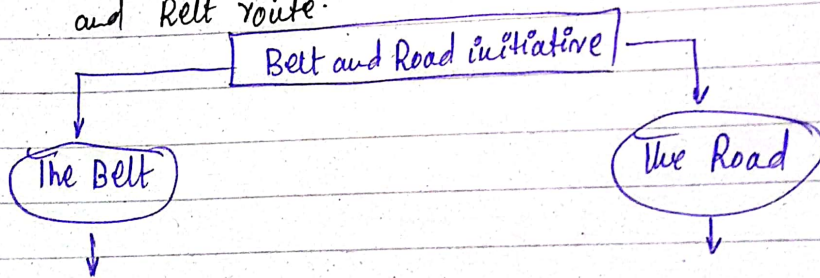 and Relt route.
Belt and Road initiative
The Belt
The Road